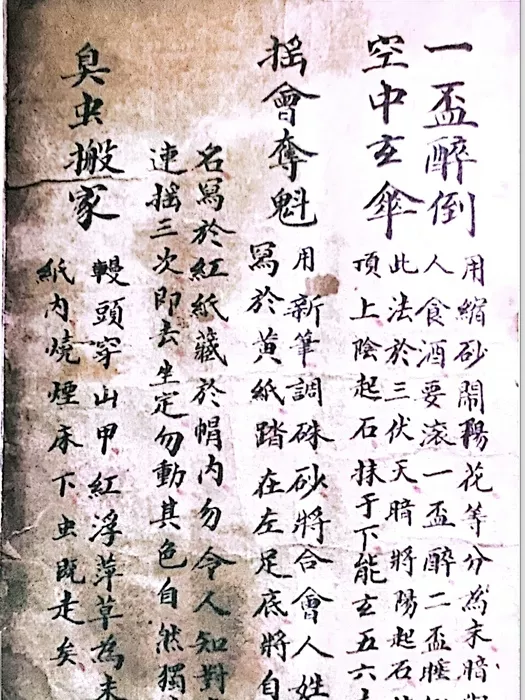 一盃醉倒
用縮砂鬧花等分為末暗
人食酒要滾一盃醉二盃睡
空中玄傘
此法於三伏天暗將陽起石
頂上陰起石抹于下能玄五六
搖會奪魁
用新筆調硃砂將合會人姓
寫於黃紙踏在左足底將自
名寫於紅紙藏於帽內勿令人知對
連搖三次即去坐定勿動其色自然獨
臭虫搬家
頭穿山甲紅浮萍草為末
紙內燒煙床下虫既走矣